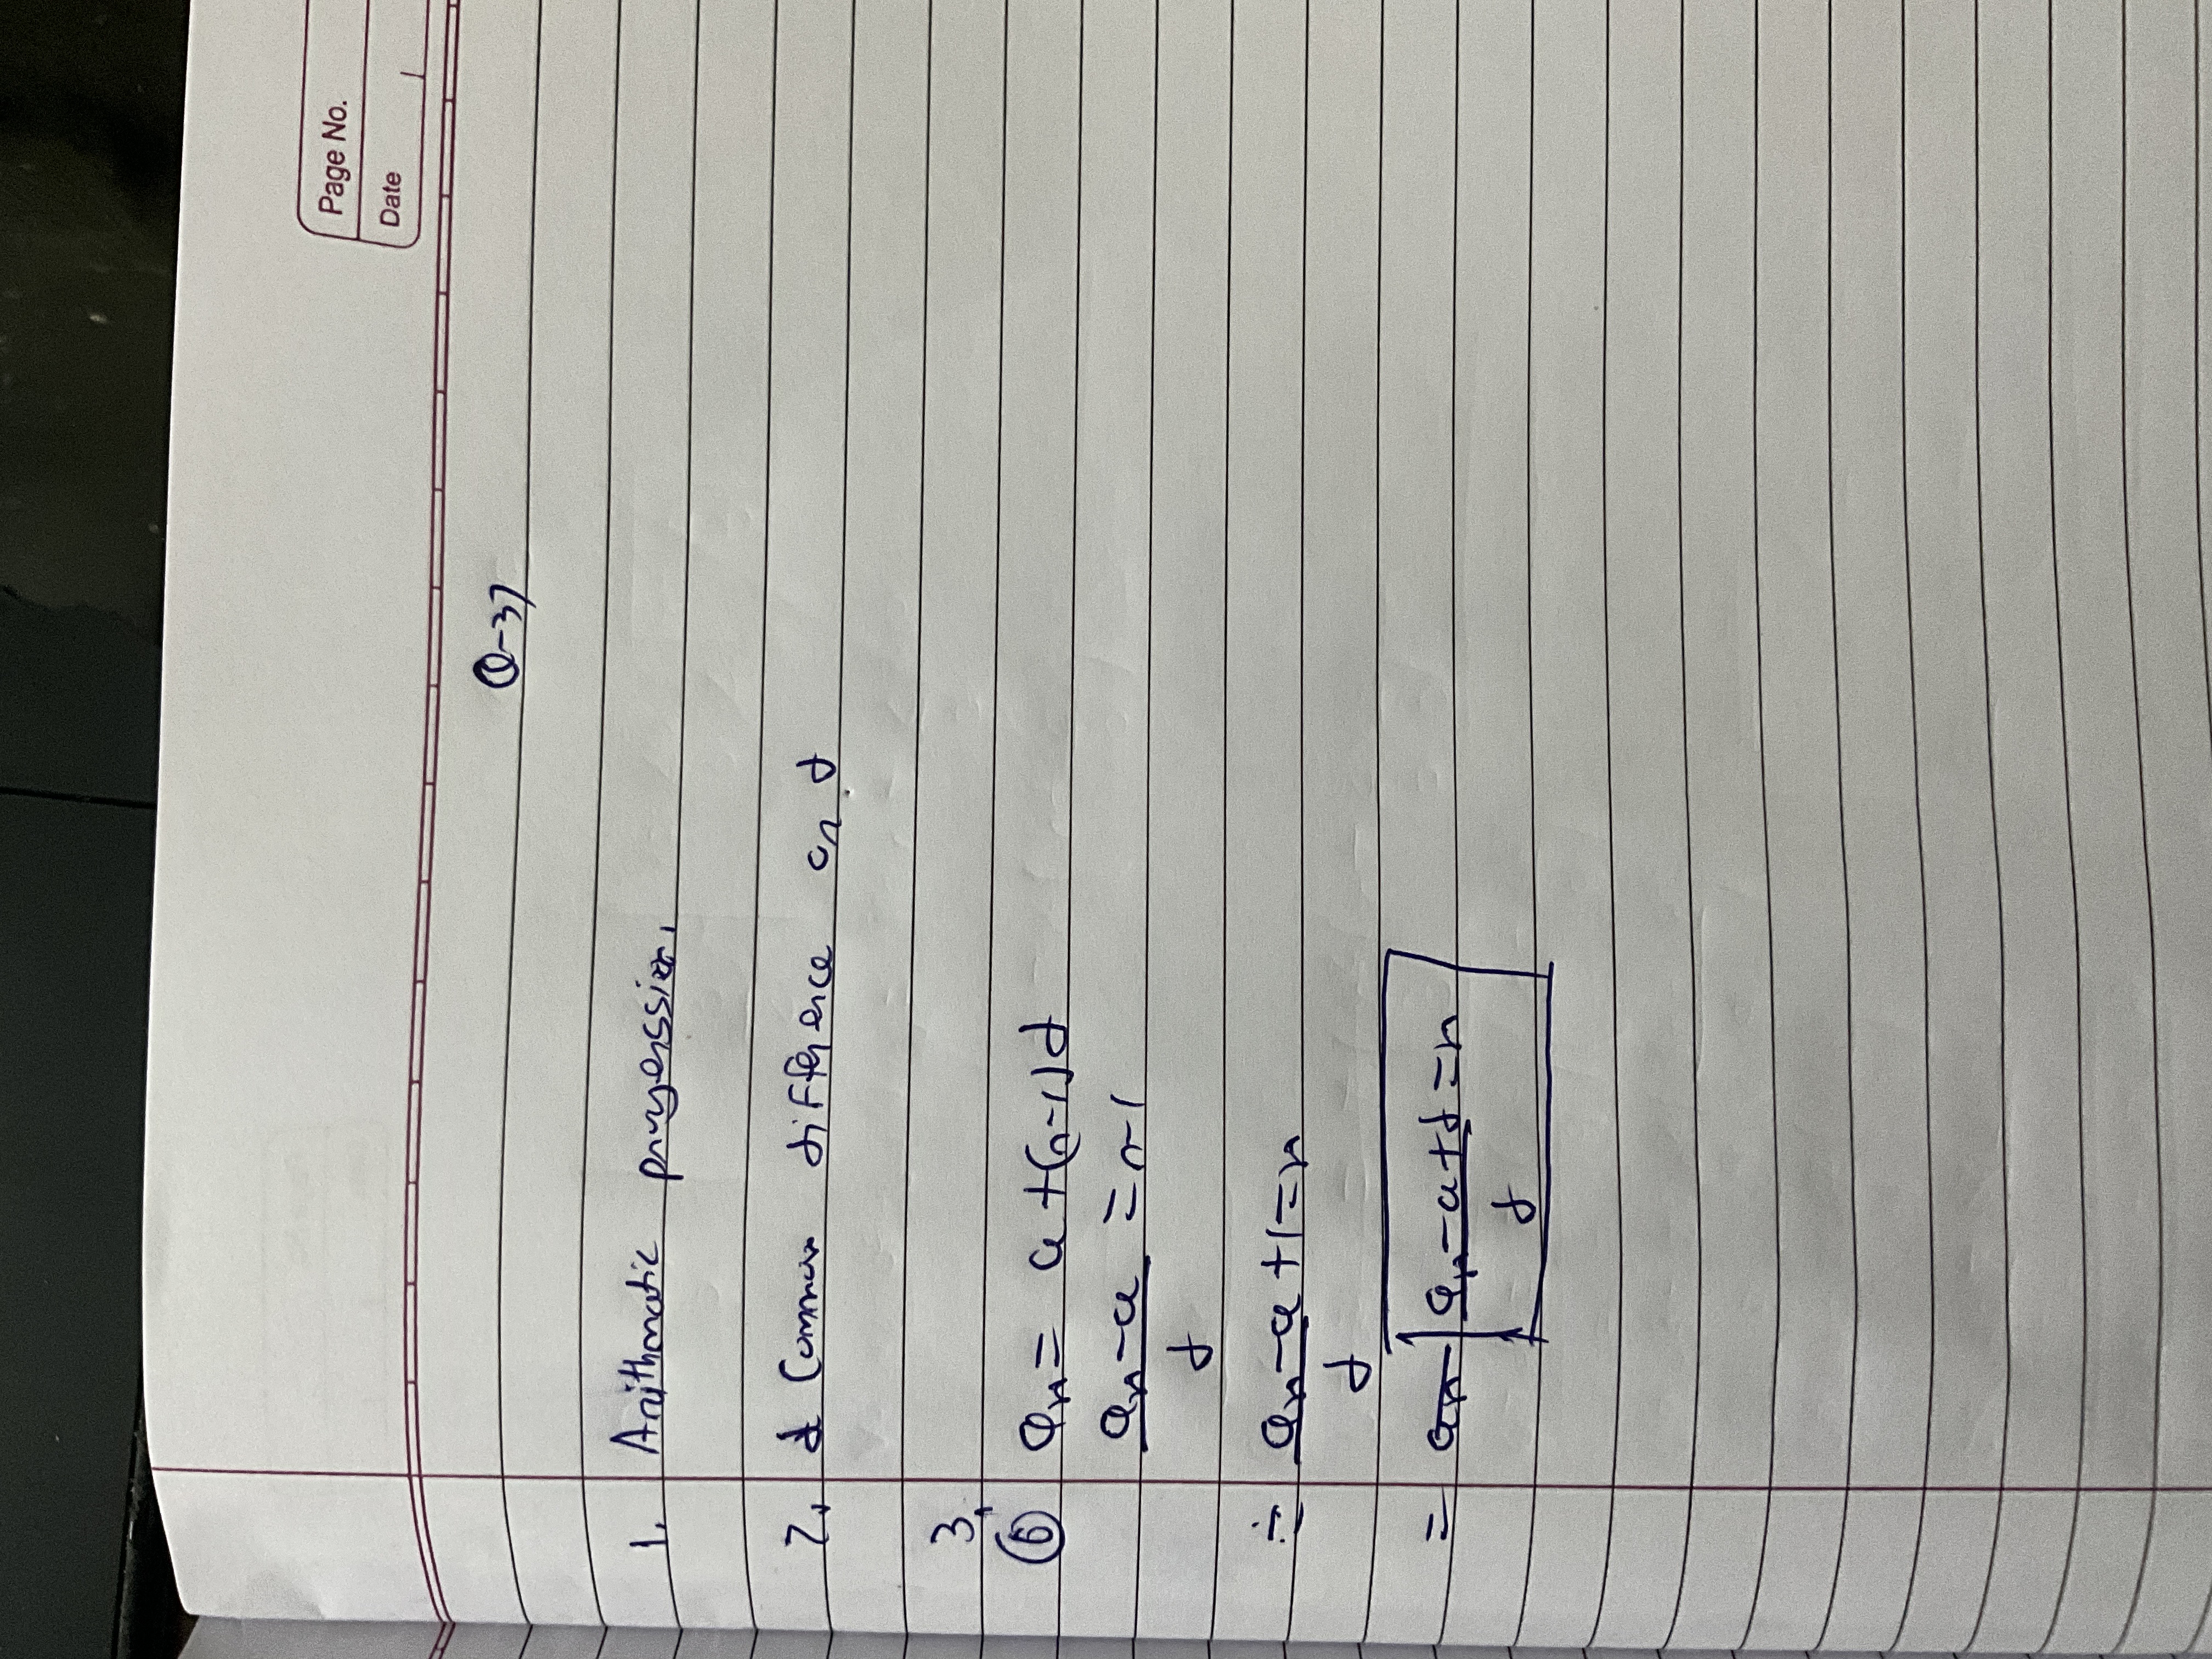 Page No.
Date
Q-37
1. Arithmetic progression.
2. Common difference or d
3.
(b) an = a+(n-1)d
an-a = n-1
d
∴ an-a +1=n
d
= an an-a+d=n
d